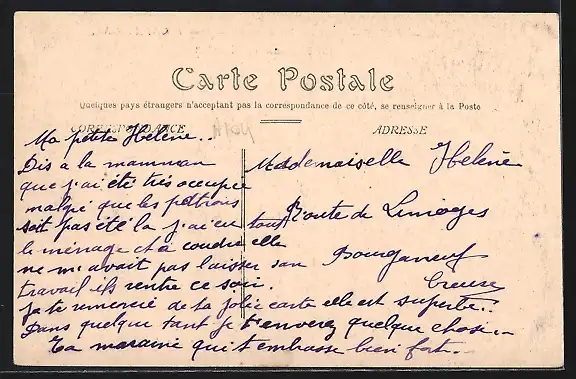 Carte Postale
Quelques pays étrangers n'acceptant pas la correspondance de ce côté, se renseigner à la Poste
CORRESPONDANCE
ADRESSE
Ma petite Helène..
Dis a la mamman
que j'ai été très occupée
malgré que les pétrons
soit pas été la j'ai eu tout
le ménage et a coudre elle
ne m'avait pas laisser san
travail ils rentre ce soir.
je te remercie de ta jolie carte elle est superbe..
Dans quelque tant je t'enverez quelque chose..
Ta maraine qui t'embrasse bien fort..
Mademaiselle Helène
Route de Limoges
Bourganeuf
Creuse